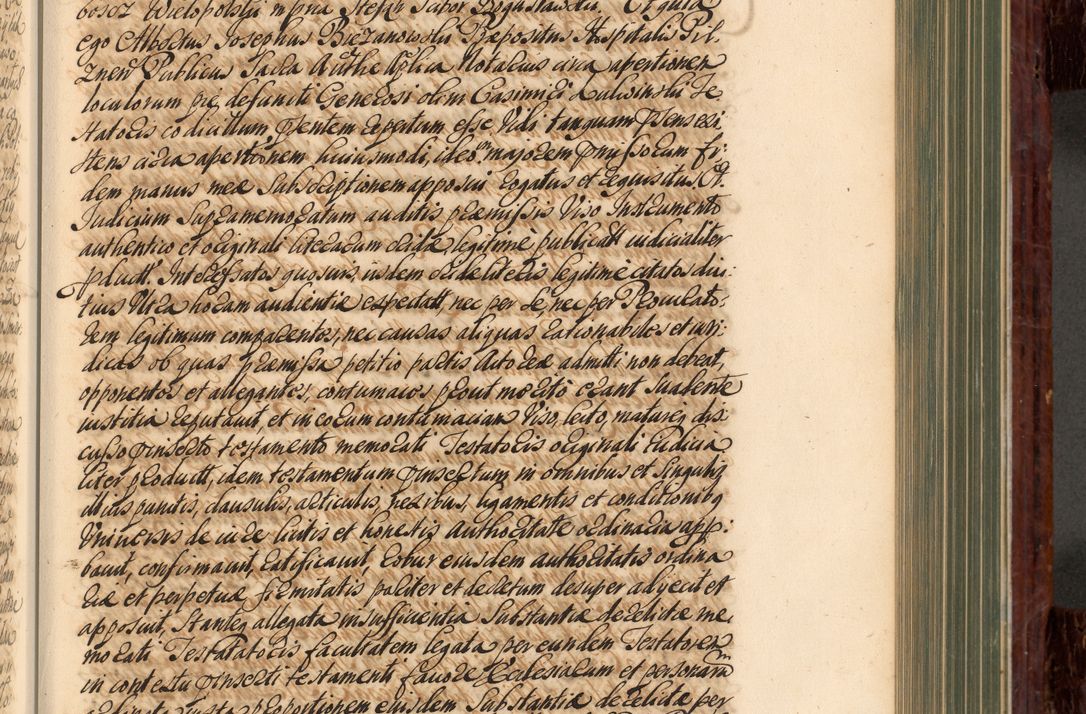 boscz Wielopolski mpria Steph Sapor Boguslawski. Et quia
ego Albertus Josephus Biezanowski Præpositus Hospitalis Pil-
znen Publicus Sacra Authe Aplica Notarius circa apertionem
loculorum pie defuncti Generosi olim Casimiri Te
statoris codicillum, pntem repertum esse Vidi tanquam pnsens exi-
stens circa apertionem huiusmodi, ideo majorem pmissorum fi-
dem manus meæ Subscriptionem apposui Rogatus et requisitus. Et
Judicium Supramemoratum auditis præmissis Viso Instrumento
authentico et originali literarum cridæ, legitime publicatt iudicialiter
pduitt. Interessatos quosuis, iisdem cridæ literis legitime citatos diu-
tius Ultra horam audientiæ expectatt, nec per Se, nec per Procurato-
rem legitimum comparentes, nec causas aliquas rationabiles et iuri-
dicas ob quas præmissa petitio partis Actoreæ admitti non debeat,
opponentes et allegantes, contumaces prout merito erant Suadente
iustitia reputauit, et in eorum contumaciam Viso, lecto, matureq dis
cusso pinserto testamento memorati Testatoris originali Iudicia
liter productt, idem testamentum pinsertum in omnibus et Singulis
illius punctis, clausulis, articulis, nexibus, ligamentis et conditionibq
Uniuersis de iure licitis et honestis Authoritate ordinaria app-
bauit, confirmauit, ratificauit, robur eiusdem authoritatis ordina
riæ et perpetuæ firmitatis pariter et decretum desuper adjecit et
apposuit, Stanteq allegata insufficientia Substantiæ derelictæ me-
morati Testatoris facultatem legata per eundem Testatorem
in contextu pinserti testamenti fauore Ecclesiarum et personarum
ordinata iuxta proportionem eiusdem Substantiæ derelictæ per